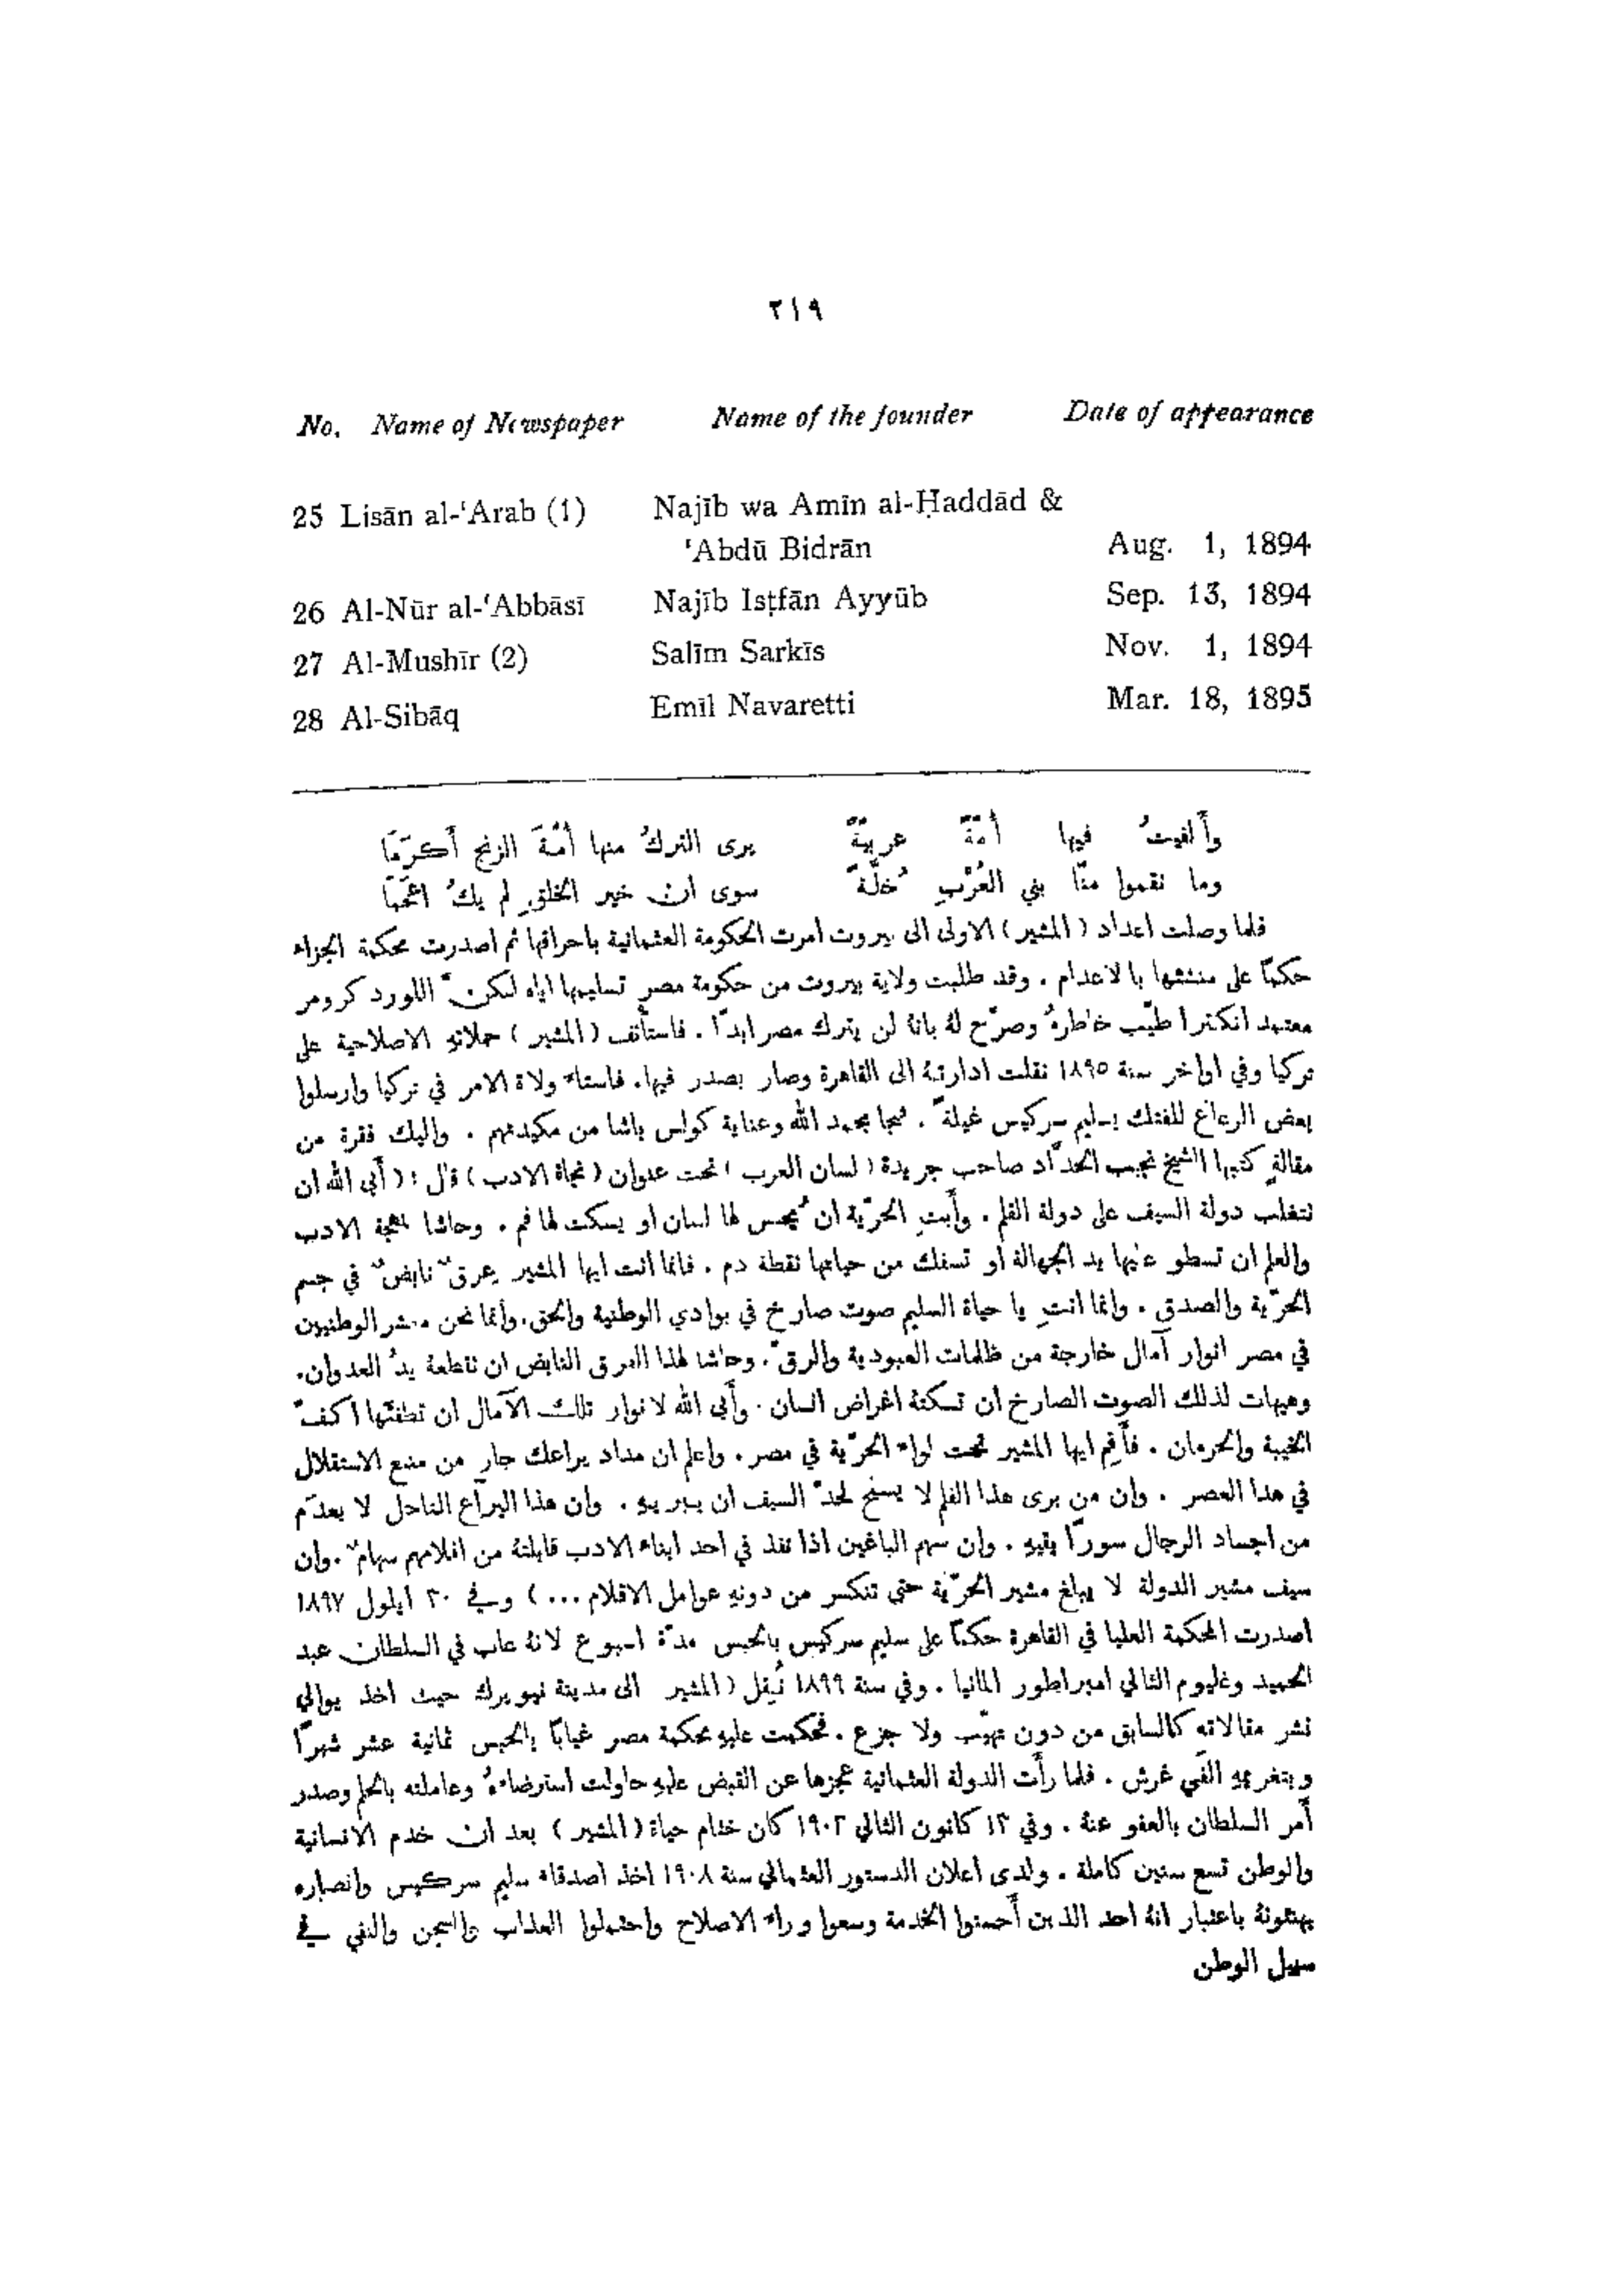 ٢١٩
No. Name of Newspaper Name of the founder Date of appearance
25 Lisān al-‘Arab (1) Najīb wa Amīn al-Ḥaddād &
‘Abdū Bidrān Aug. 1, 1894
26 Al-Nūr al-‘Abbāsī Najīb Isṭfān Ayyūb Sep. 13, 1894
27 Al-Mushīr (2) Salīm Sarkīs Nov. 1, 1894
28 Al-Sibāq Emīl Navaretti Mar. 18, 1895
وأَلفيتُ فيها أمّةً عربيّةً يرى التركُ منها أمّةَ الزنج أَكرَمَا
وما نقموا منّا بني العُرْبِ خُلّةً سوى ان خير الخلقِ لم يكُ اعجَمَا
فلما وصلت اعداد (المشير) الاولى الى بيروت امرت الحكومة العثمانية باحراقها ثم اصدرت محكمة الجزاء
حكمًا على منشئها بالاعدام . وقد طلبت ولاية بيروت من حكومة مصر تسليمها اياه لكنّ اللورد كرومر
معتمد انكلترا طيّب خاطرهُ وصرّح لهُ بانهُ لن يترك مصر ابدًا . فاستأنف (المشير) حملاته الاصلاحية على
تركيا وفي اواخر سنة ١٨٩٥ نقلت ادارتهُ الى القاهرة وصار يصدر فيها. فاستاء ولاة الامر في تركيا وارسلوا
بعض الرعاع للفتك بسليم سركيس غيلةً . فنجا بحمد الله وعناية كولس باشا من مكيدتهم . واليك فقرة من
مقالةٍ كتبها الشيخ نجيب الحدّاد صاحب جريدة (لسان العرب) تحت عنوان (نجاة الادب) قال : (أبى الله ان
تتغلب دولة السيف على دولة القلم . وأبتِ الحرّية ان يُحبس لها لسان او يسكت لها فم . وحاشا لمهجة الادب
والعلم ان تسطو عليها يد الجهالة او تسفك من حياتها نقطة دم . فانما انت ايها المشير عرقٌ نابضٌ في جسم
الحرّية والصدق . وانما انتِ يا حياة السليم صوت صارخ في بوادي الوطنية والحق. وانما نحن معشر الوطنيين
في مصر انوار آمال خارجة من ظلمات العبودية والرقّ. وحاشا لهذا العرق النابض ان تقطعهُ يدُ العدوان.
وهيهات لذلك الصوت الصارخ ان تسكتهُ اغراض انسان . وأبى الله لانوار تلك الآمال ان تطفئها اكفّ
الخيبة والحرمان . فأقم ايها المشير تحت لواء الحرّية في مصر . واعلم ان مداد يراعك جارٍ من منبع الاستقلال
في هذا العصر . وان من برى هذا القلم لا يسنح لحدّ السيف ان يبريه . وان هذا اليراع الناحل لا يعدم
من اجساد الرجال سورًا يقيه . وان سهم الباغين اذا نفذ في احد ابناء الادب قابلتهُ من اقلامهم سهامٌ . وان
سيف مشير الدولة لا يبلغ مشير الحرّية حتى تنكسر من دونهِ عوامل الاقلام ...) وفي ٣٠ ايلول ١٨٩٧
اصدرت المحكمة العليا في القاهرة حكمًا على سليم سركيس بالحبس مدّة اسبوع لانهُ عاب في السلطان عبد
الحميد وغليوم الثاني امبراطور المانيا . وفي سنة ١٨٩٩ نُقِل (المشير الى مدينة نيويرك حيث اخذ يوالي
نشر مقالاته كالسابق من دون تهيّب ولا جزع . فحكمت عليه محكمة مصر غيابًا بالحبس ثمانية عشر شهرًا
وبتغريمه الفَي غرش . فلما رأَت الدولة العثمانية عجزها عن القبض عليهِ حاولت استرضاءهُ وعاملته بالحلم وصدر
أمر السلطان بالعفو عنهُ . وفي ١٣ كانون الثاني ١٩٠٢ كان ختام حياة (المشير) بعد ان خدم الانسانية
والوطن تسع سنين كاملة . ولدى اعلان الدستور العثماني سنة ١٩٠٨ اخذ اصدقاء سليم سركيس وانصاره
يهنئونهُ باعتبار انهُ احد الذين أحسنوا الخدمة وسعوا وراء الاصلاح واحتملوا العذاب والسجن والنفي في
سبيل الوطن